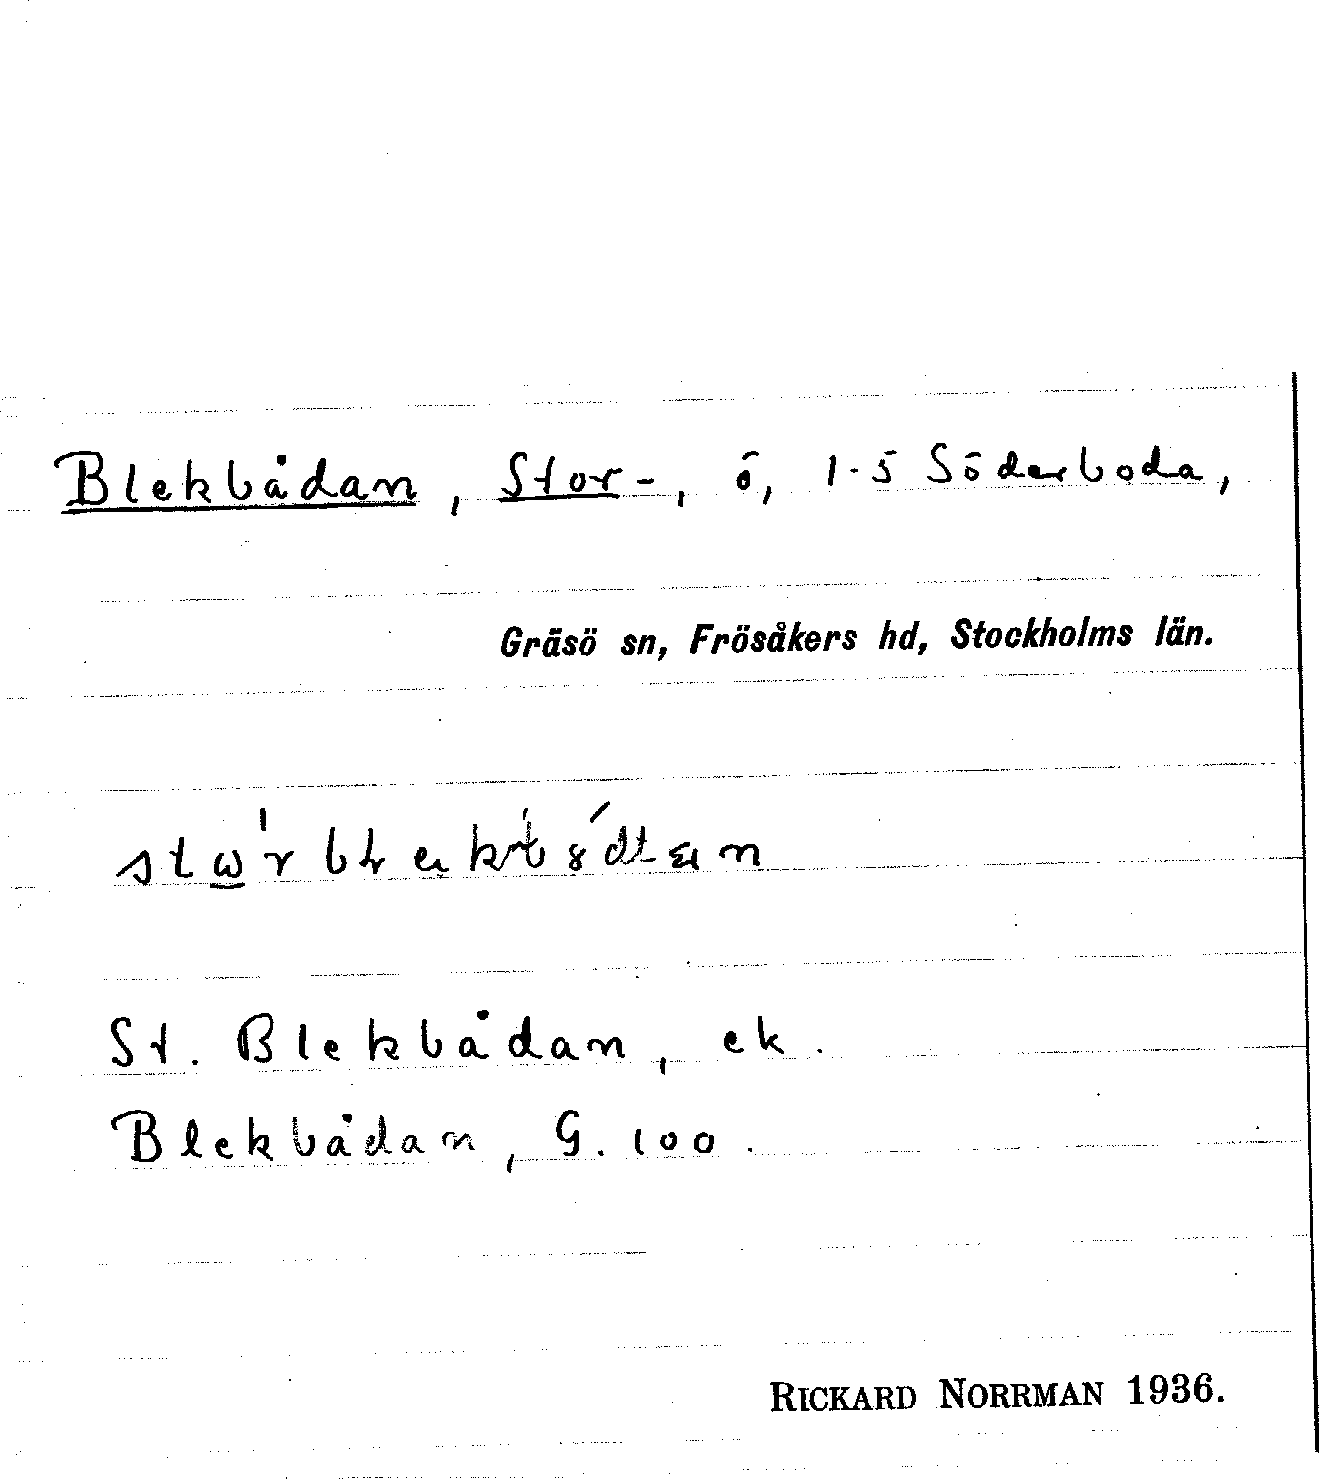 Blekbådan, Stor-, ö, 1-5 Söderboda,
Gräsö sn, Frösåkers hd, Stockholms län.
St. Blekbådan, ek.
Blekbådan, G. 100.
RICKARD NORRMAN 1936.